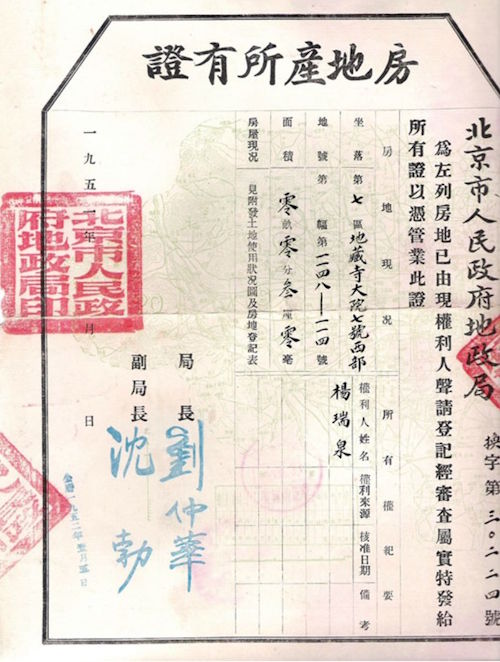 房地產所有證
北京市人民政府地政局
換字第三〇二二四號
為左列房地已由現權利人聲請登記經審查屬實特發給
所有證以憑管業此證
房地現況
坐落 第七區地藏寺大院七號西部
地號 第 幅第一一四八—一一四號
面積 零畝零分叁厘零毫
房屋現況 見附發土地使用狀況圖及房地登記表
所有權紀要
權利人姓名 權利來源 核准日期 備考
楊瑞泉
局長 劉仲華
副局長 沈勃
一九五一年 月 日
北京市人民政
府地政局印